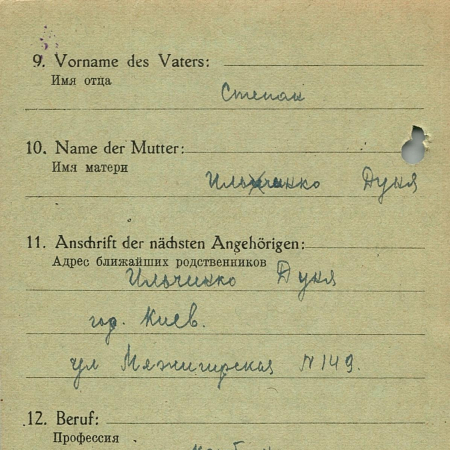 9. Vorname des Vaters:
Имя отца
Степан
10. Name der Mutter:
Имя матери
Ильчинко Дуня
11. Anschrift der nächsten Angehörigen:
Адрес ближайших родственников
Ильчинко Дуня
гор. Киев.
ул Межигирская N 149.
12. Beruf:
Профессия